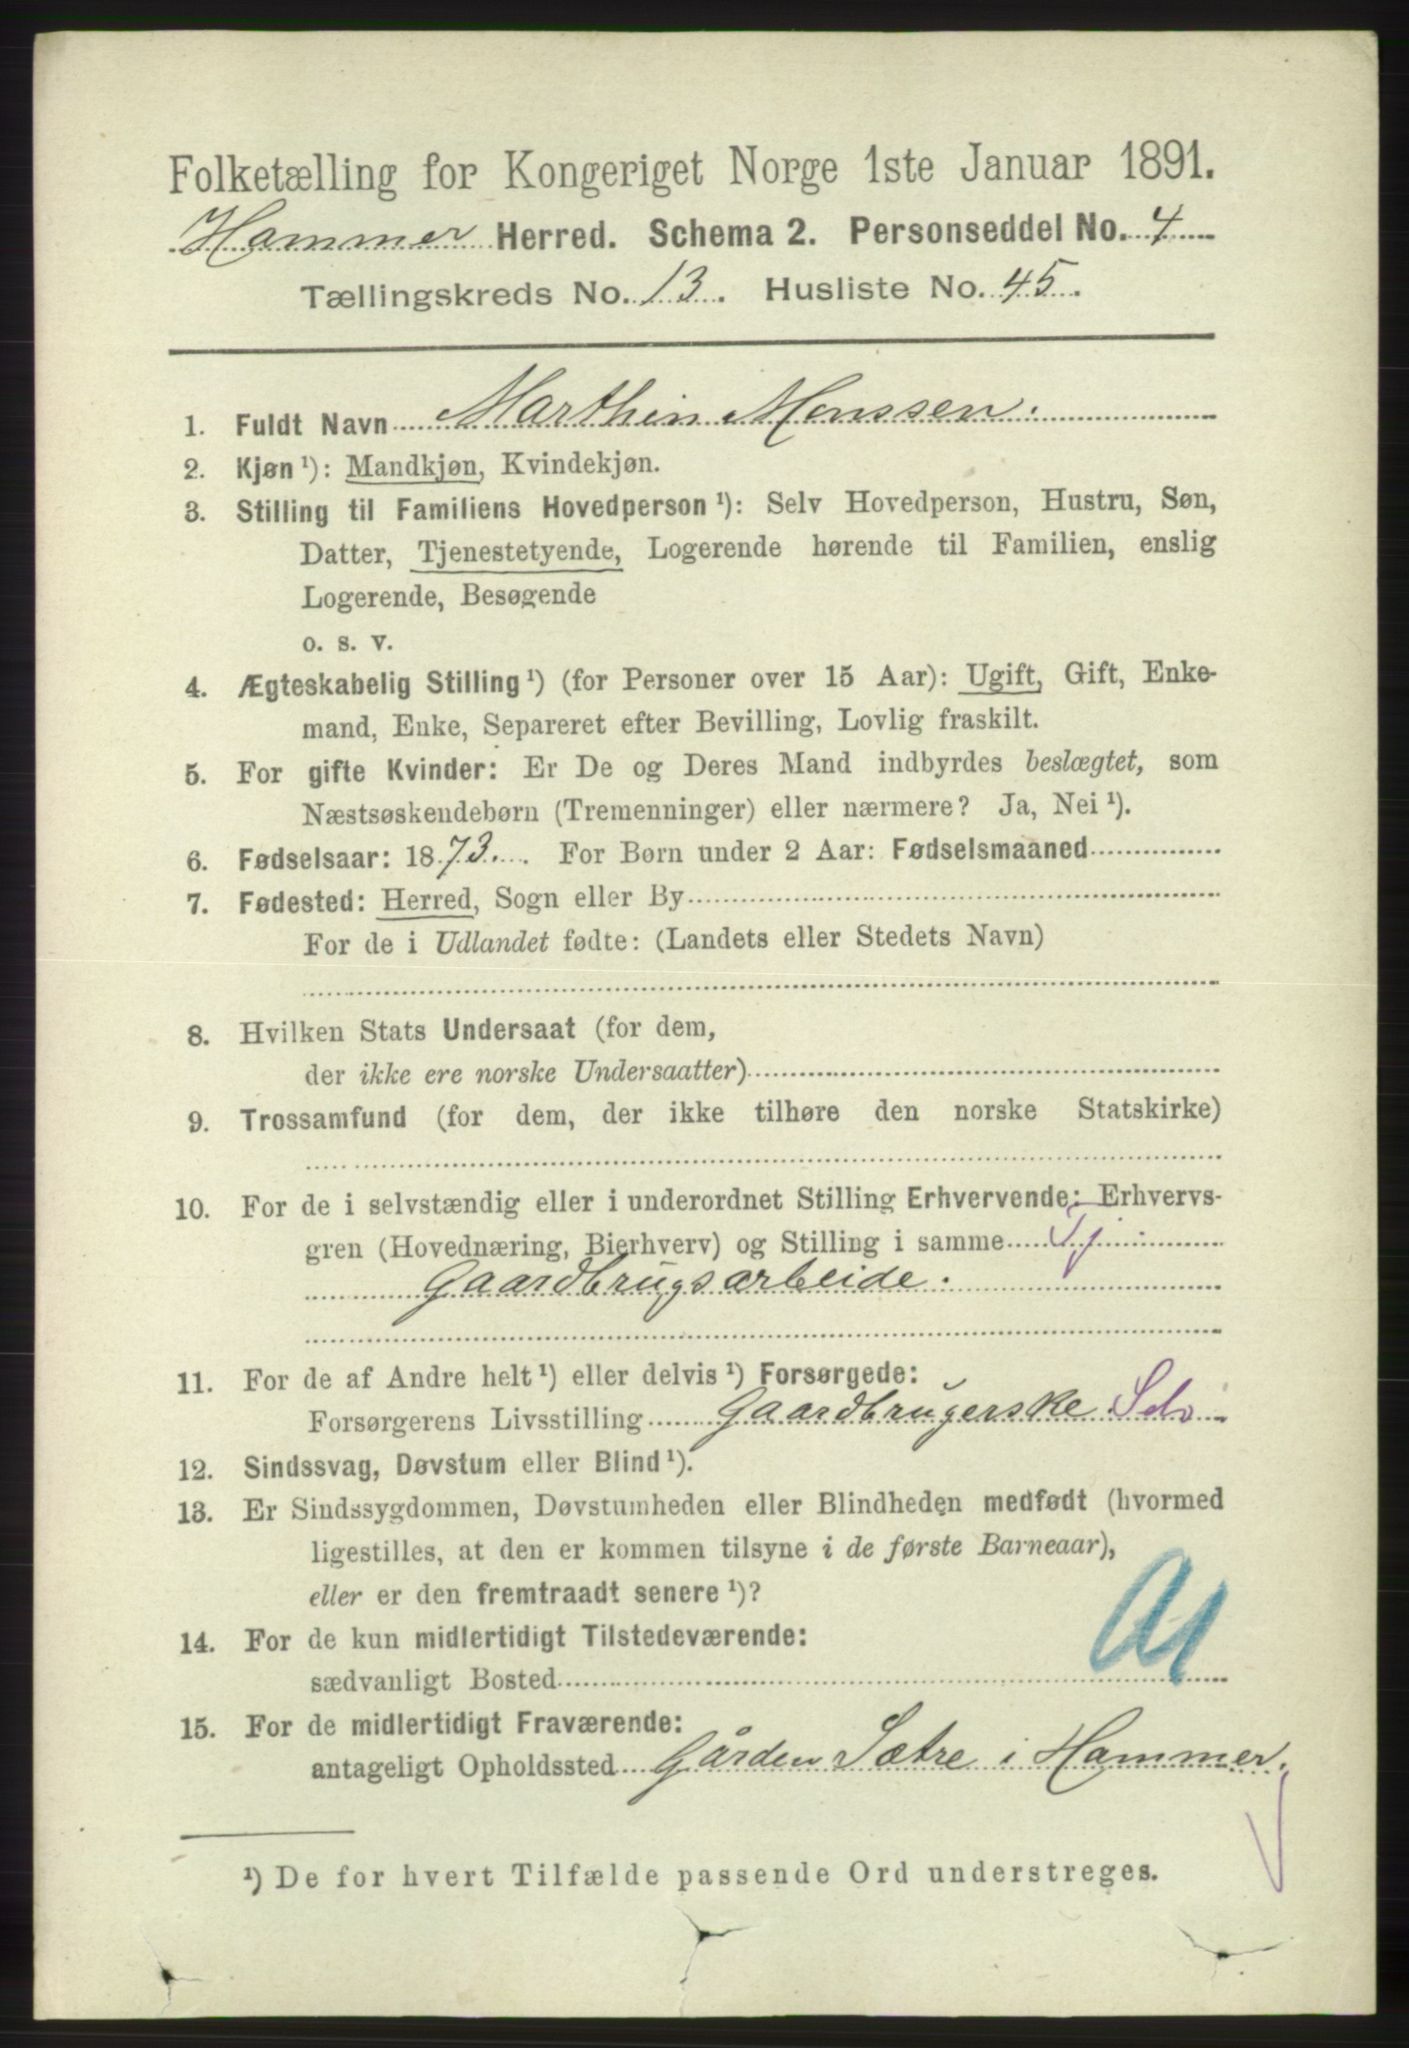 Folketælling for Kongeriget Norge 1ste Januar 1891.
Hammer Herred. Schema 2. Personseddel No. 4
Tællingskreds No. 13. Husliste No. 45.
1. Fuldt Navn Marthin Monssen.
2. Kjøn ¹): Mandkjøn, Kvindekjøn.
3. Stilling til Familiens Hovedperson ¹): Selv Hovedperson, Hustru, Søn,
Datter, Tjenestetyende, Logerende hørende til Familien, enslig
Logerende, Besøgende
o. s. v.
4. Ægteskabelig Stilling ¹) (for Personer over 15 Aar): Ugift, Gift, Enke-
mand, Enke, Separeret efter Bevilling, Lovlig fraskilt.
5. For gifte Kvinder: Er De og Deres Mand indbyrdes beslægtet, som
Næstsøskendebørn (Tremenninger) eller nærmere? Ja, Nei ¹).
6. Fødselsaar: 1873. For Børn under 2 Aar: Fødselsmaaned
7. Fødested: Herred, Sogn eller By
For de i Udlandet fødte: (Landets eller Stedets Navn)
8. Hvilken Stats Undersaat (for dem,
der ikke ere norske Undersaatter)
9. Trossamfund (for dem, der ikke tilhøre den norske Statskirke)
10. For de i selvstændig eller i underordnet Stilling Erhvervende: Erhvervs-
gren (Hovednæring, Bierhverv) og Stilling i samme Tj.
Gaardbrugsarbeide.
11. For de af Andre helt ¹) eller delvis ¹) Forsørgede:
Forsørgerens Livsstilling Gaardbrugerske Selv
12. Sindssvag, Døvstum eller Blind ¹).
13. Er Sindssygdommen, Døvstumheden eller Blindheden medfødt (hvormed
ligestilles, at den er kommen tilsyne i de første Barneaar),
eller er den fremtraadt senere ¹)?
14. For de kun midlertidigt Tilstedeværende:
sædvanligt Bosted
15. For de midlertidigt Fraværende:
antageligt Opholdssted Gården Sætre i Hammer.
¹) De for hvert Tilfælde passende Ord understreges.